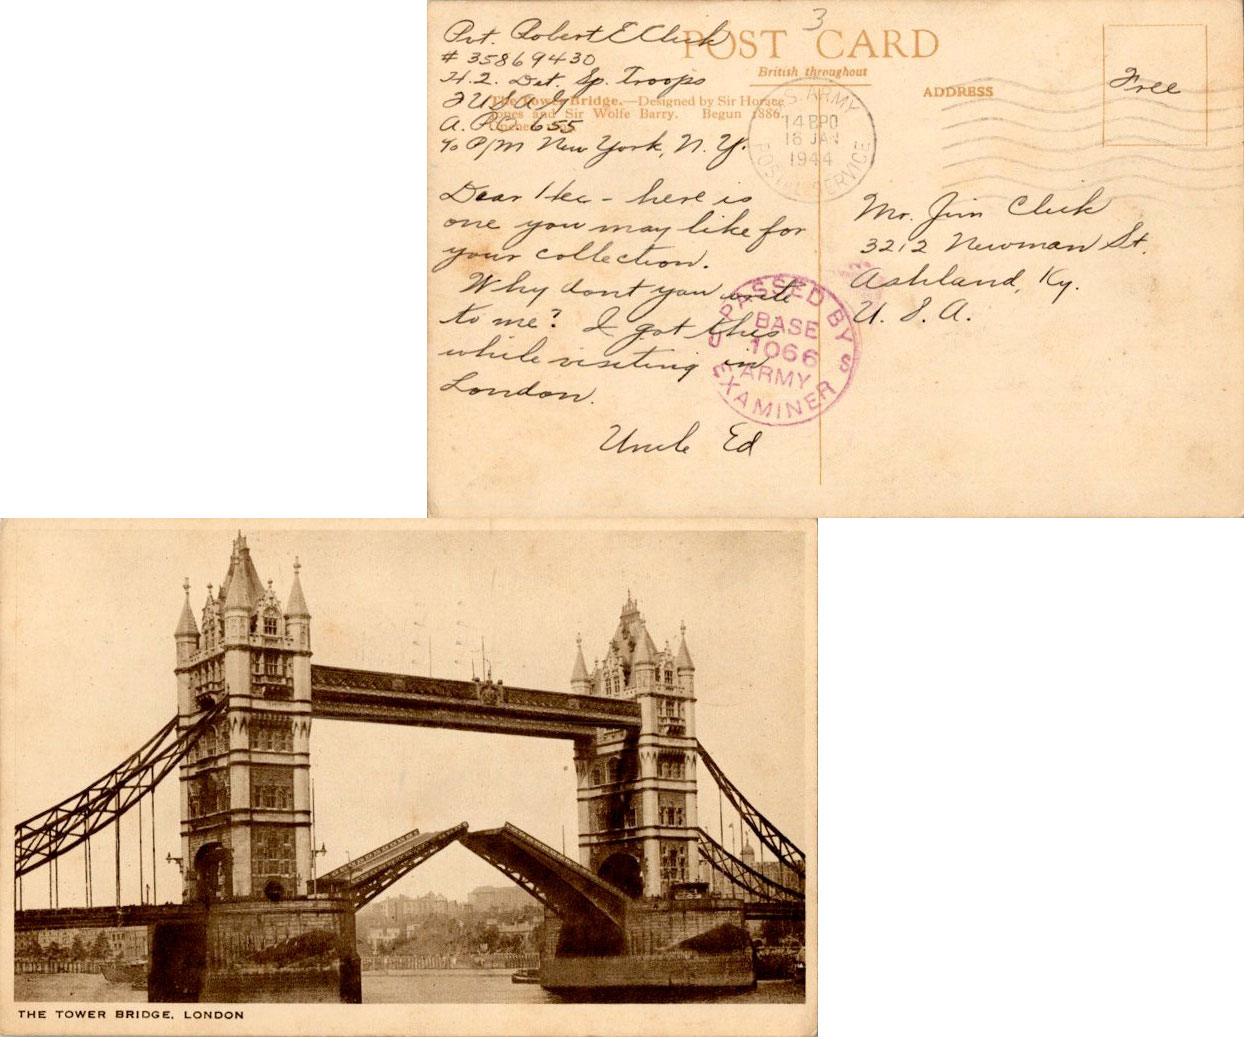 Pvt. Robert E Click
# 35869430
H.2. Det. Sp. Troops
FUSAG
A.P.O. 655
℅ P/M New York, N.Y.
Dear Hec - here is
one you may like for
your collection.
Why dont you write
to me? I got this
while visiting in
London.
Uncle Ed
3
POST CARD
British throughout
The Tower Bridge.—Designed by Sir Horace
Jones and Sir Wolfe Barry. Begun 1886.
ADDRESS
Free
U.S. ARMY
14 BPO
16 JAN
1944
POSTAL SERVICE
Mr. Jim Click
3212 Newman St.
Ashland, Ky.
U. S. A.
PASSED BY
U S
BASE
1066
ARMY
EXAMINER
THE TOWER BRIDGE, LONDON